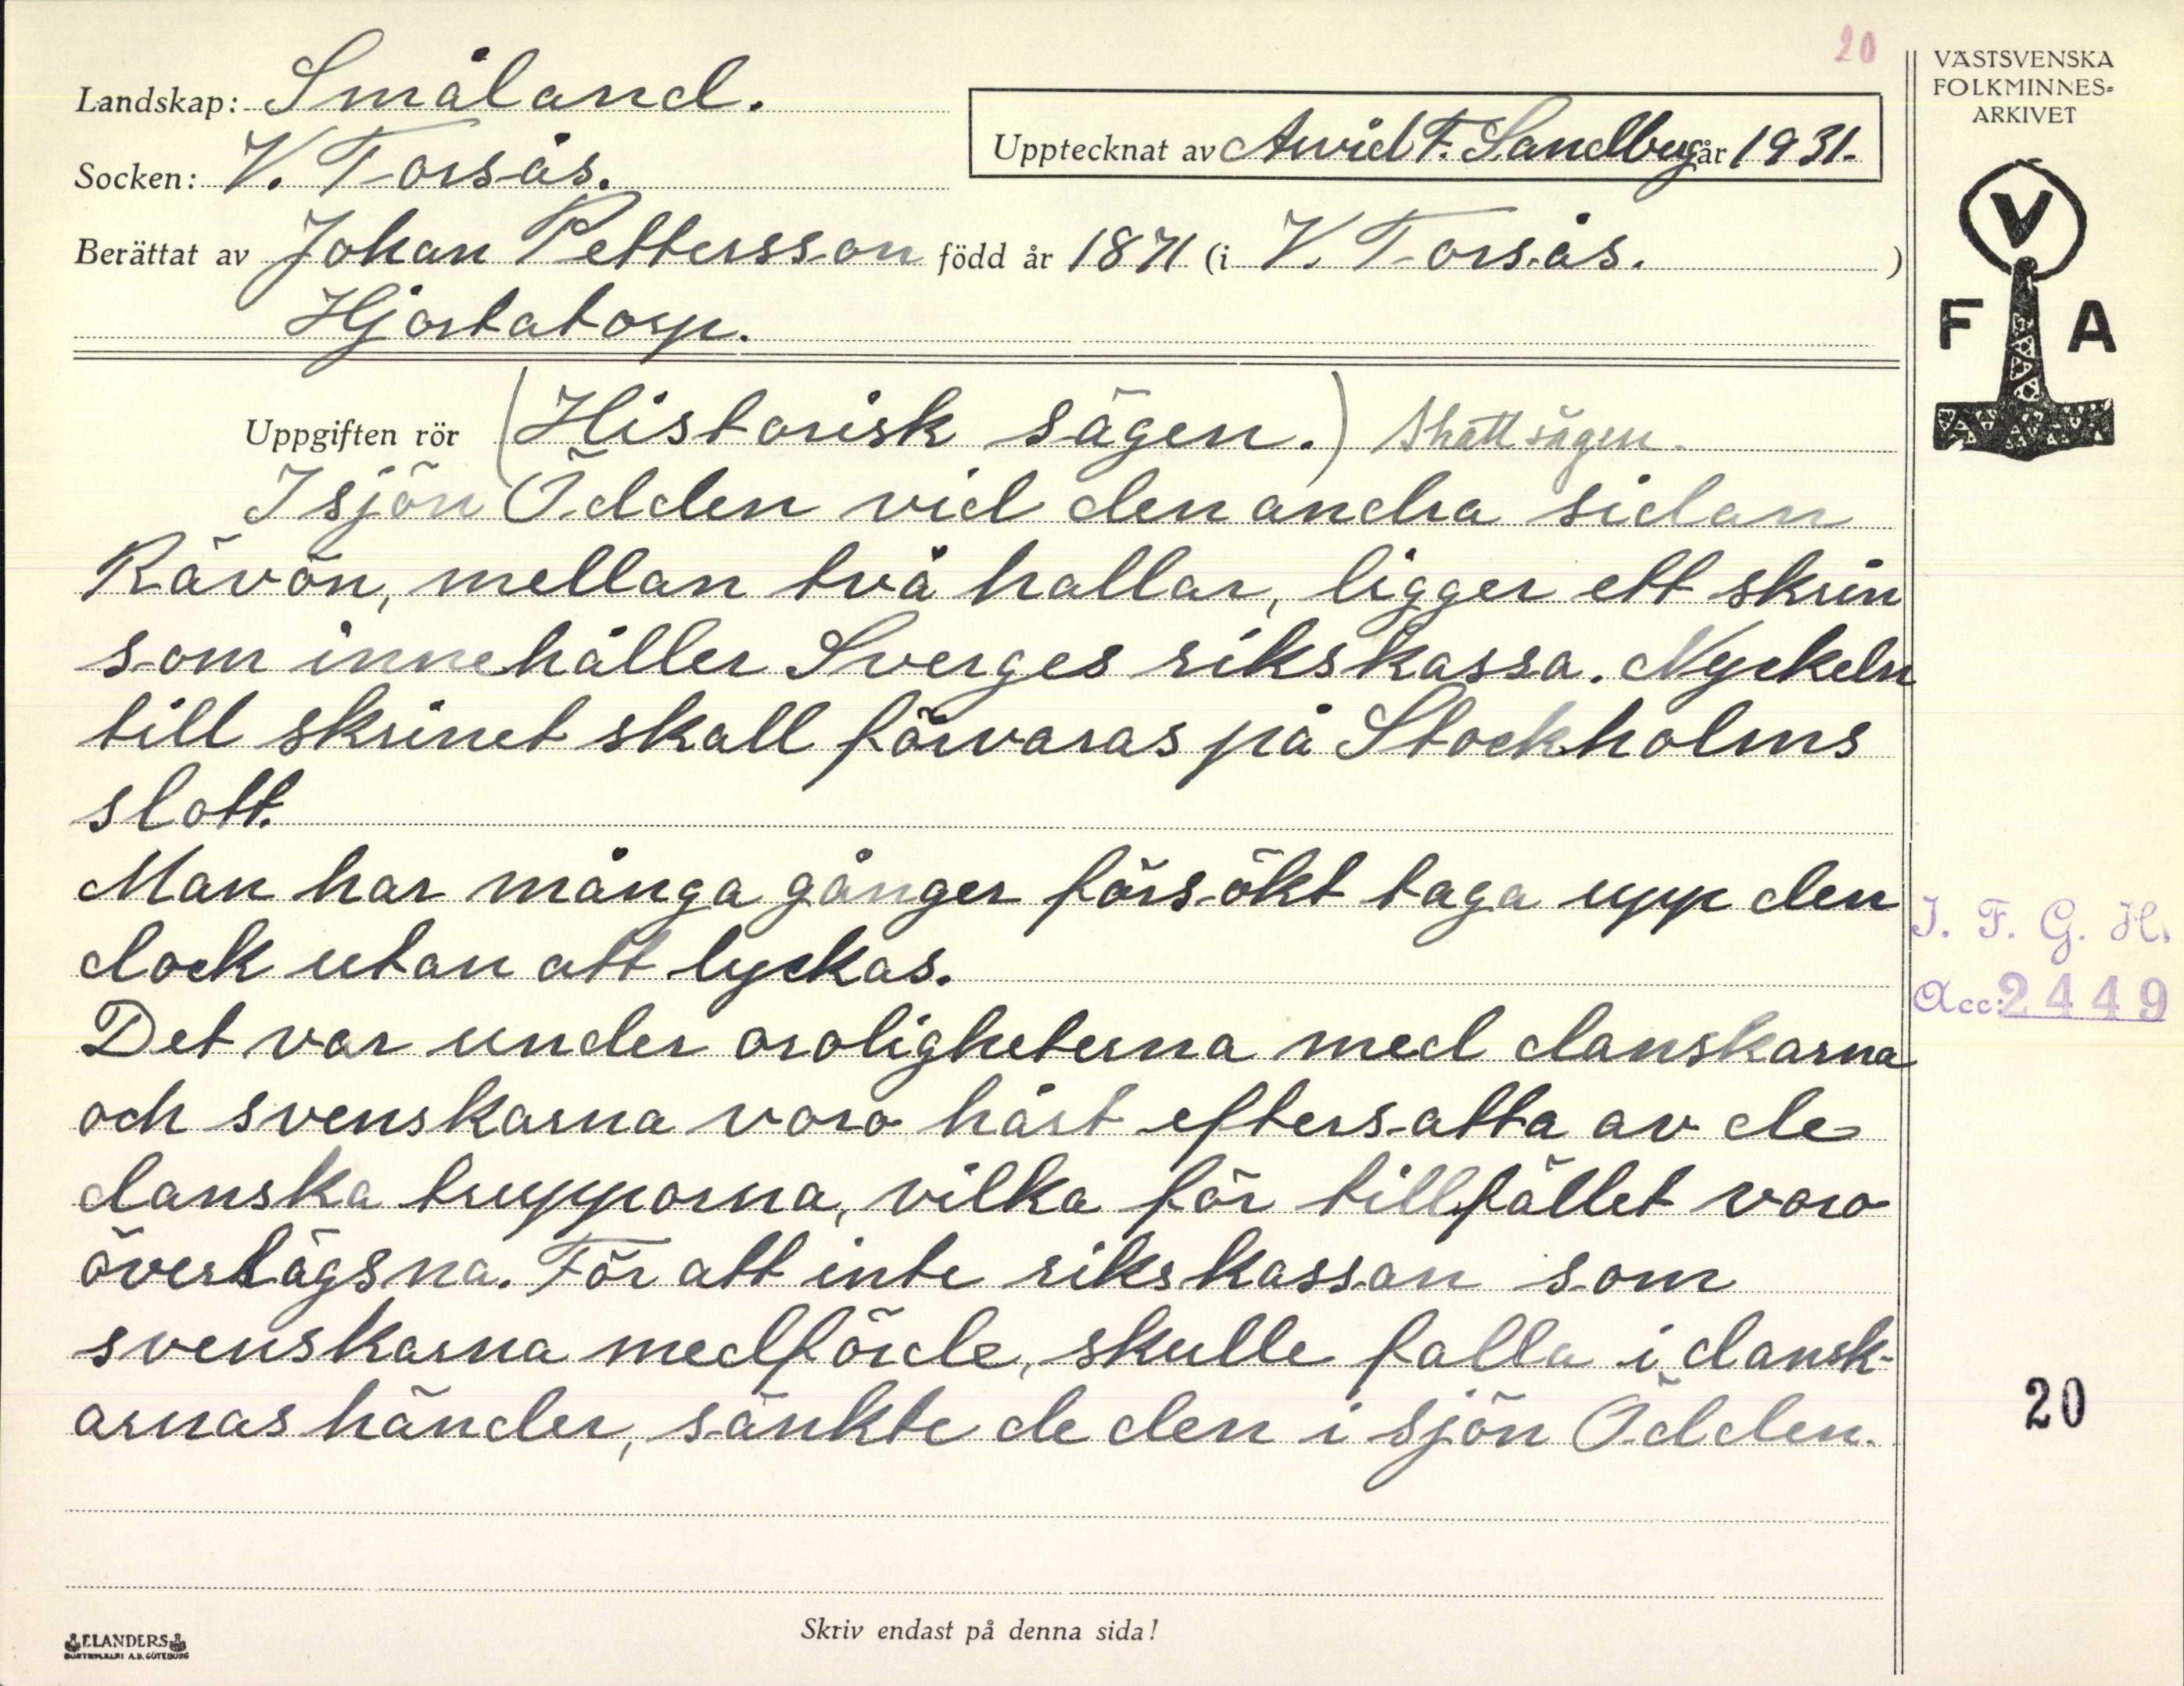 20
Landskap: Småland.
Socken: V. Torsås.
Upptecknat av Arvid F. Sandberg år 1931.
Berättat av Johan Pettersson född år 1871 (i V. Torsås. )
Hjortatorp.
Uppgiften rör (Historisk sägen.) Skattsägen.
I sjön Ödden vid den andra sidan
Rävön, mellan två hallar, ligger ett skrin
som innehåller Sverges rikskassa. Nyckeln
till skrinet skall förvaras på Stockholms
slott.
Man har många gånger försökt taga upp den
dock utan att lyckas.
Det var under oroligheterna med danskarna
och svenskarna voro hårt eftersatta av de
danska trupporna, vilka för tillfället voro
överlägsna. För att inte rikskassan som
svenskarna medförde, skulle falla i dansk-
arnas händer, sänkte de den i sjön Ödden.
Skriv endast på denna sida!
ELANDERS
BOKTRYCKERI A.B. GÖTEBORG
VÄSTSVENSKA
FOLKMINNES-
ARKIVET
V
F A
I. F. G. H.
Acc: 2449
20